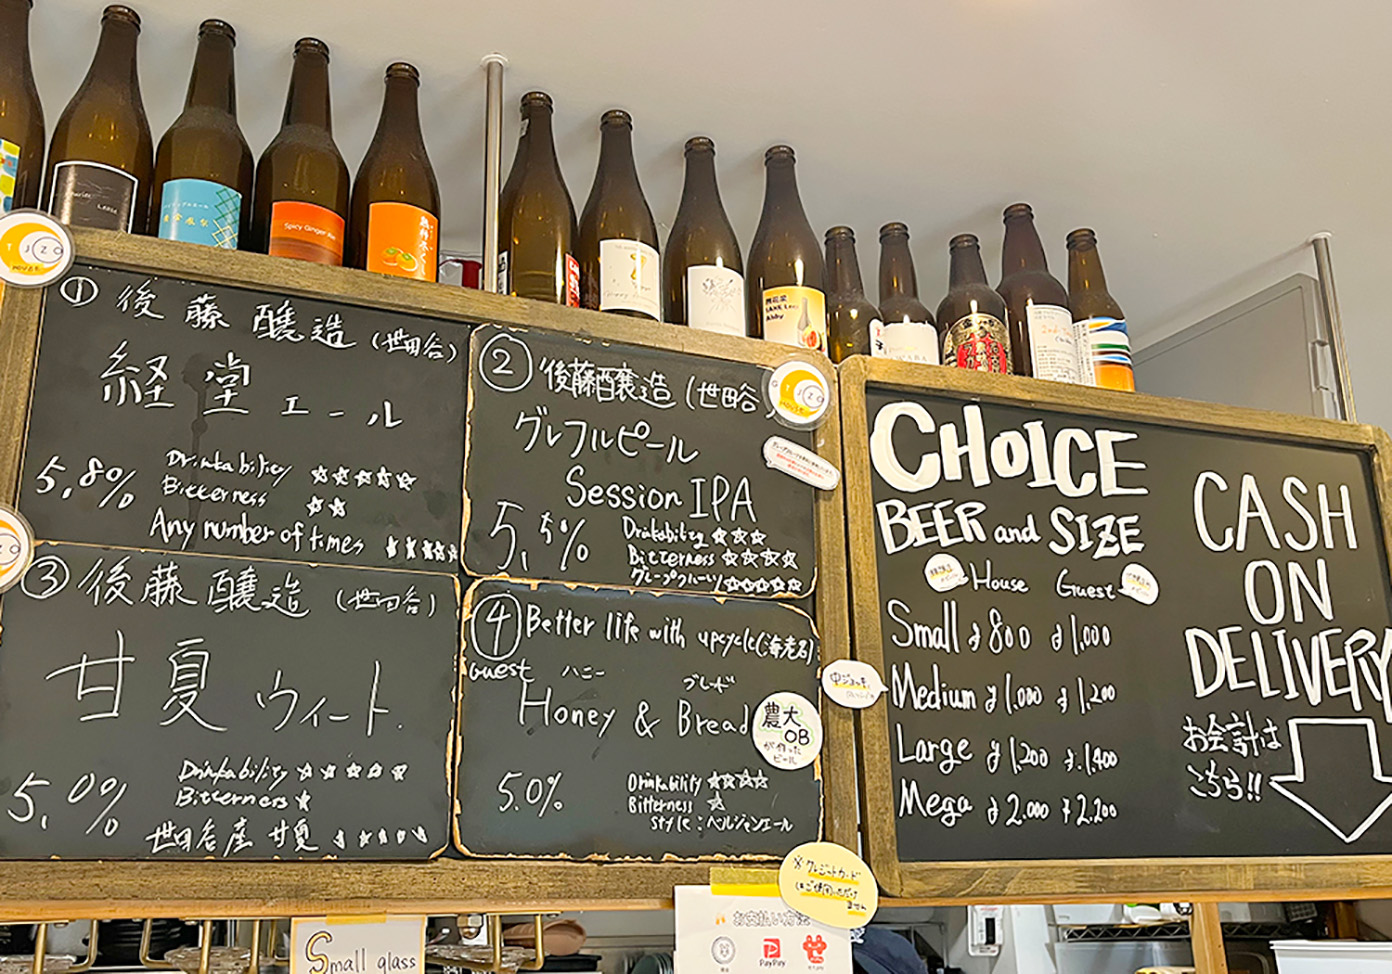 Spicy Ginger Ale
① 後藤醸造 (世田谷)
経堂エール
5.8%
Drinkability ☆☆☆☆☆
Bitterness ☆☆
Any number of times ☆☆☆☆☆
② 後藤醸造 (世田谷)
グレフルピール
Session IPA
5.5%
Drinkability ☆☆☆
Bitterness ☆☆☆☆
グレープフルーツ ☆☆☆☆☆
③ 後藤醸造 (世田谷)
甘夏ウィート.
5.0%
Drinkability ☆☆☆☆☆
Bitterness ☆
世田谷産 甘夏 ☆☆☆☆☆
④ Better life with upcycle (海老名)
Guest
ハニー ブレッド
Honey & Bread
農大
OB
が作った
ビール
5.0%
Drinkability ☆☆☆☆
Bitterness ☆
style : ベルジャンエール
CHOICE
BEER and SIZE
House Guest
Small ¥800 ¥1,000
中ジョッキ
Medium ¥1,000 ¥1,200
Large ¥1,200 ¥1,400
Mega ¥2,000 ¥2,200
CASH
ON
DELIVERY
お会計は
こちら!!
※クレジットカード
はご使用いただけ
ません
お支払い方法
PayPay
Small glass